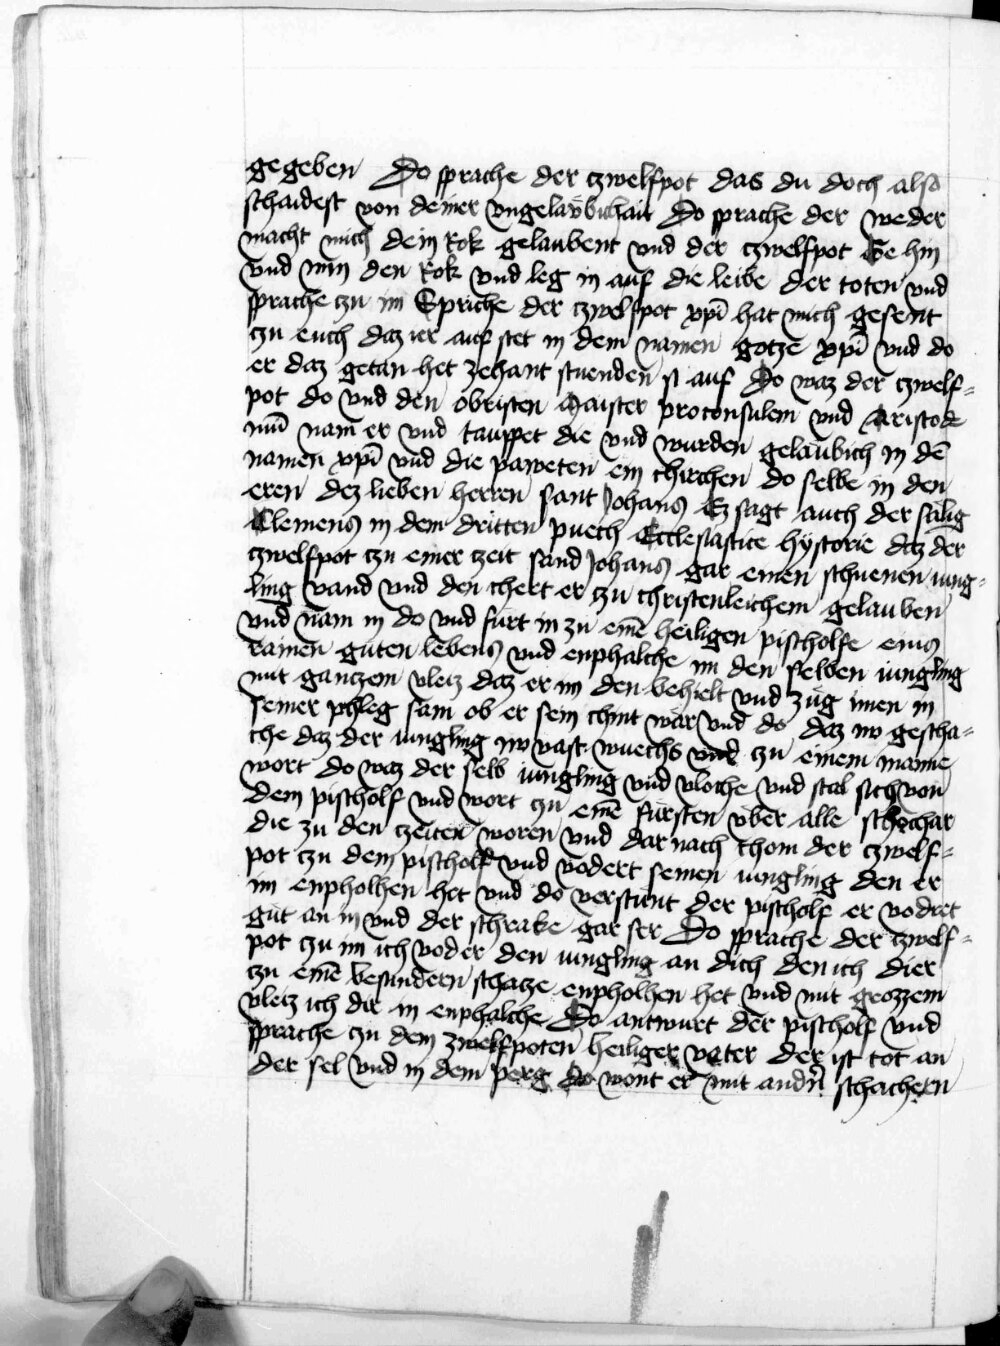 gegeben Do sprache der czwelfpot das du doch also
schaidest von deiner vngelaubichait Do sprache der weder
macht mich dein Rok gelaubent vnd der czwelfpot Ge hin
vnd nim den Rok vnd leg in auf die leibe der toten vnd
sprache czu im Spriche der czwelfpot xpi hat mich gesent
czu euch daz ier auf stet in dem namen gotze xpi vnd do
er daz getan het zehant stuenden si auf Do waz der czwelf=
pot do vnd den obristen maister proconsulem vnd Aristode
mu nam er vnd tauppet die vnd wurden gelaubich in de
namen xpi vnd die paweten ein chirchen do selbe in den
eren dez lieben herren sant Johans Ez sagt auch der salig
Clemens in dem dritten puech Ecclesiastice hystorie daz der
czwelfpot czu einer czeit sand Johans gar einen schuenen iung=
ling vand vnd den chert er zu christenleichem gelauben
vnd nam in do vnd furt in zu eine heiligen pischolfe eins
rainen guten lebens vnd enphalche im den selben iungling
mit ganczem vleiz daz er im den behielt vnd zug imen in
seiner phleg sam ob er sein chint war vnd do daz nw gescha=
che daz der iungling nw vast wuechs vnd zu einem manne
wort do waz der selb iungling vnd vloche vnd stal sich von
dem pischolf vnd wort zu eine fursten vber alle schochar
die zu den czeiten woren vnd dar nach chom der czwelf=
pot czu dem pischolf vnd vodert seinen iungling den er
im enpholhen het vnd do verstunt der pischolf er vodret
gut an in vnd der schrake gar ser Do sprache der czwelf=
pot czu im ich voder den iungling an dich den ich dier
czu eine besundern schatze enpholhen het vnd mit grozzem
vleiz ich dir in enphalche Do antwurt der pischolf vnd
sprache czu dem zwelfpoten heiliger vater der ist tot an
der sel vnd in dem perg do wont er mit andn schachern